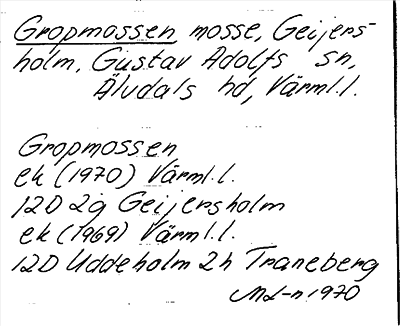 Gropmossen mosse, Geijers-
holm, Gustav Adolfs sn,
Älvdals hd, Värml.l.
Gropmossen
ek (1970) Värml.l.
12D 2g Geijersholm
ek (1969) Värml.l.
12D Uddeholm 2h Traneberg
ML-n 1970